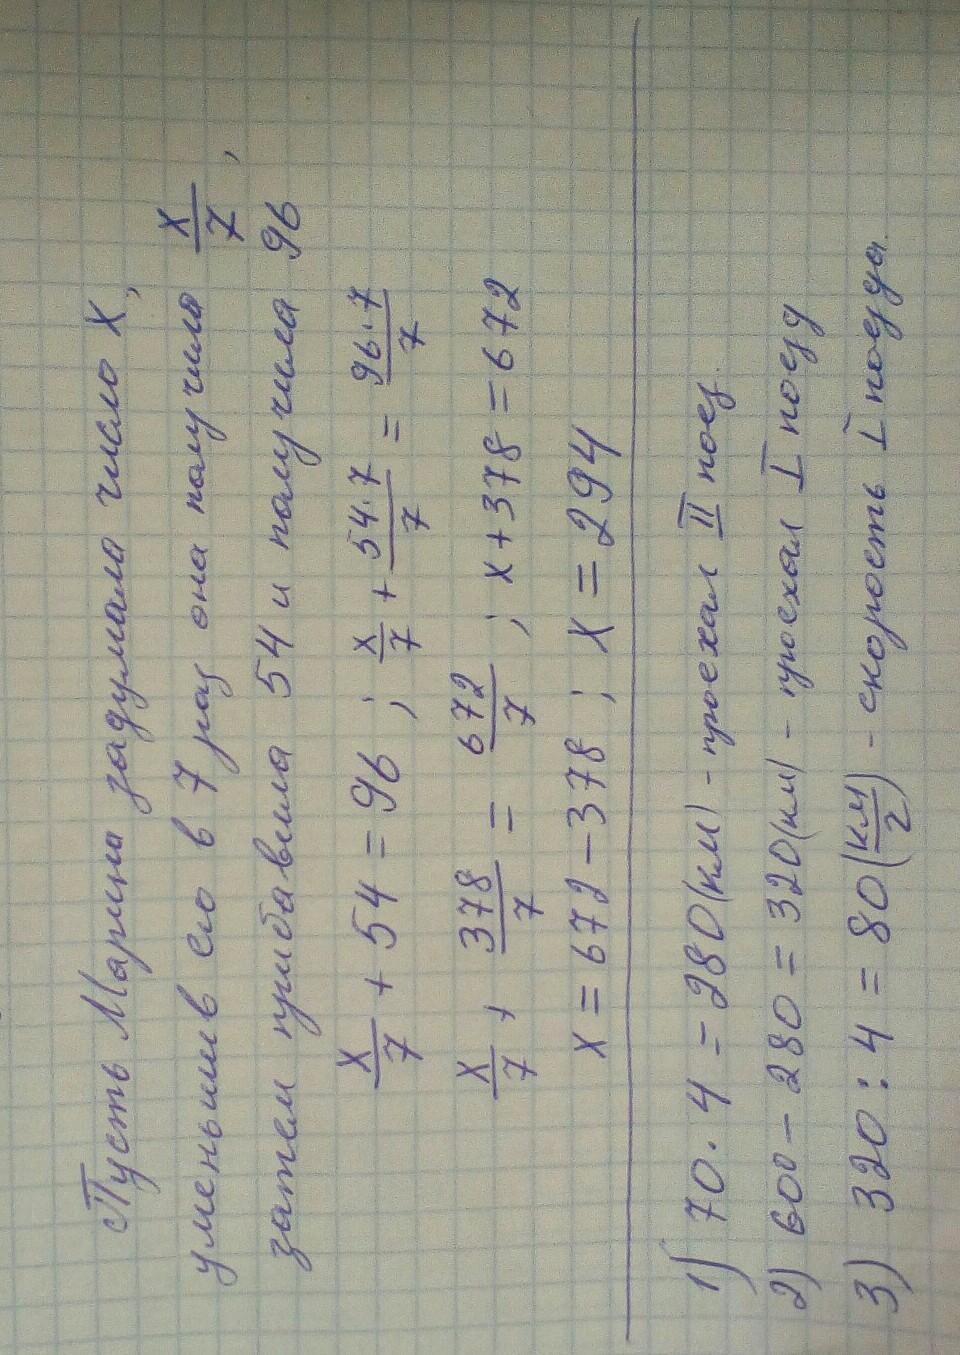 Пусть Марина задумала число X,
уменьшив его в 7 раз она получила X/7,
затем прибавила 54 и получила 96
X/7 + 54 = 96 ; X/7 + 54·7/7 = 96·7/7
X/7 + 378/7 = 672/7 ; X + 378 = 672
X = 672 - 378 ; X = 294
1) 70 · 4 = 280 (км) - проехал II поез.
2) 600 - 280 = 320 (км) - проехал I поезд
3) 320 : 4 = 80 (км/г) - скорость I поезда.